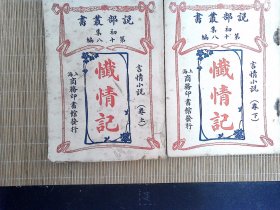 說部叢書
初集
第十八編
言情小說
（卷上）
懺情記
上海商務印書館發行
說部叢書
初集
第十八編
言情小說
（卷下）
懺情記
上海商務印書館發行